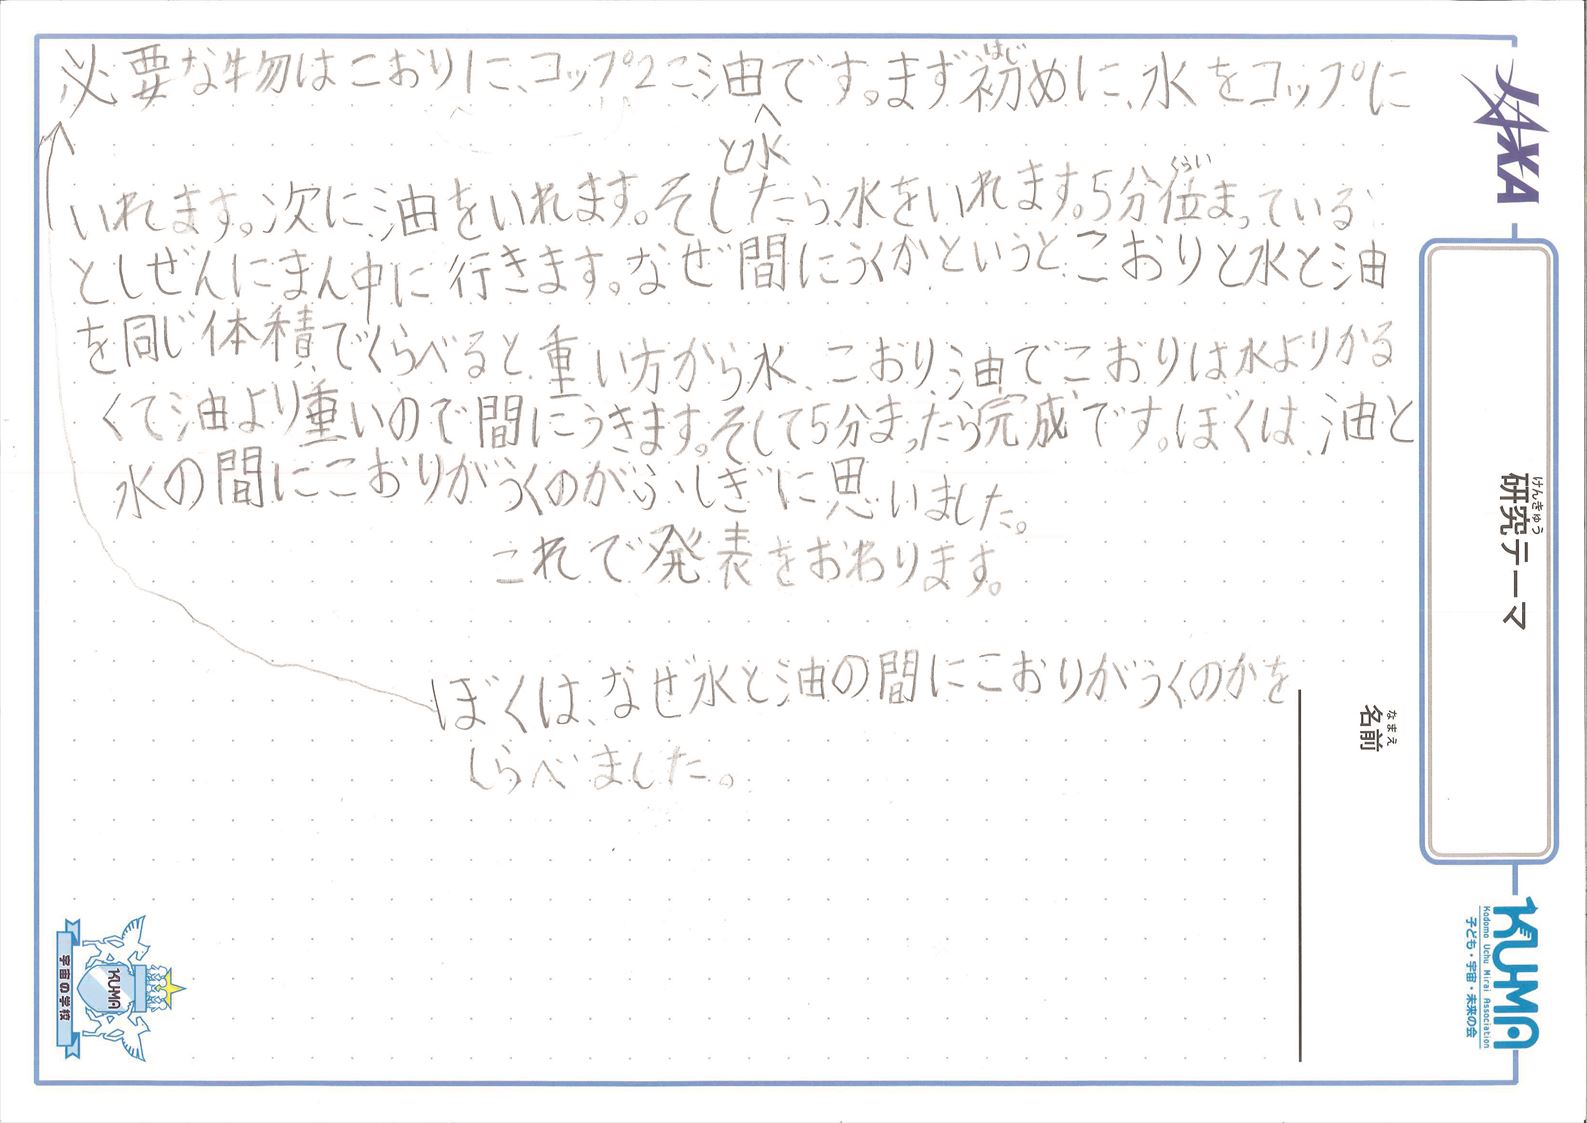 必要な物はこおりに、コップ2こ、油です。まず初めに、水をコップに
はじ
と水
いれます。次に、油をいれます。そしたら、水をいれます。5分位まっている
くらい
としぜんにまん中に行きます。なぜ間にうくかというと、こおりと水と油
を同じ体積でくらべると、重い方から水、こおり、油でこおりは水よりかる
くて油より重いので間にうきます。そして5分まったら完成です。ぼくは、油と
水の間にこおりがうくのがふしぎに思いました。
これで発表をおわります。
ぼくは、なぜ水と油の間にこおりがうくのかを
しらべました。
JAXA
研究テーマ
けんきゅう
名前
なまえ
KUMA
Kodomo Uchu Mirai Association
子ども・宇宙・未来の会
KUMA
宇宙の学校